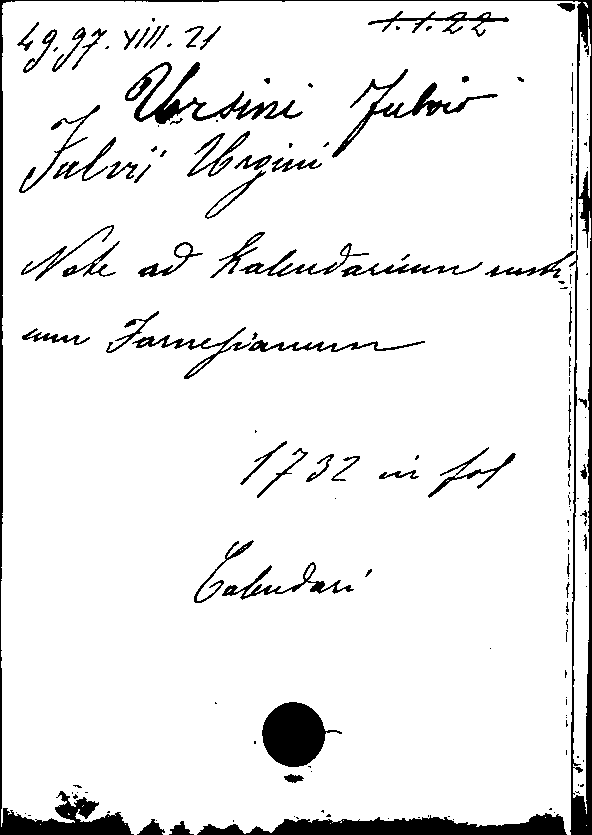 49.97.VIII.21
1.1.22
Ursini Fulvio
Fulvii Ursini
Note ad Kalendarium rusti=
cum Farnesianum
1732 in fol
Calendari